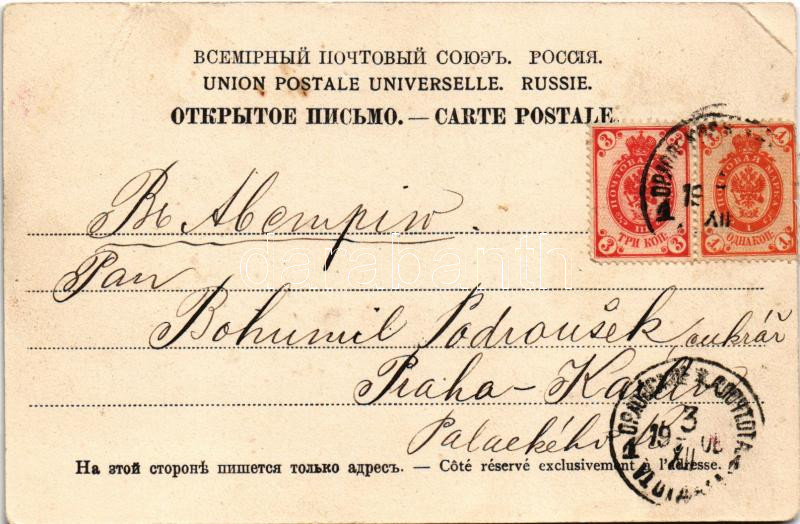 ВСЕМІРНЫЙ ПОЧТОВЫЙ СОЮЗЪ. РОССІЯ.
UNION POSTALE UNIVERSELLE. RUSSIE.
ОТКРЫТОЕ ПИСЬМО. — CARTE POSTALE.
3 3
ПОЧТОВАЯ
ТРИ КОП.
3 3
1 1
ПОЧТОВАЯ МАРКА
ОДНА КОП.
1 1
1
15
XII
Въ Австрію.
Pan
Bohumil Podroušek cukrář
Praha-
Palackého
3
1 19 06
XII
На этой сторонѣ пишется только адресъ. — Côté réservé exclusivement à l'adresse.
darabanth